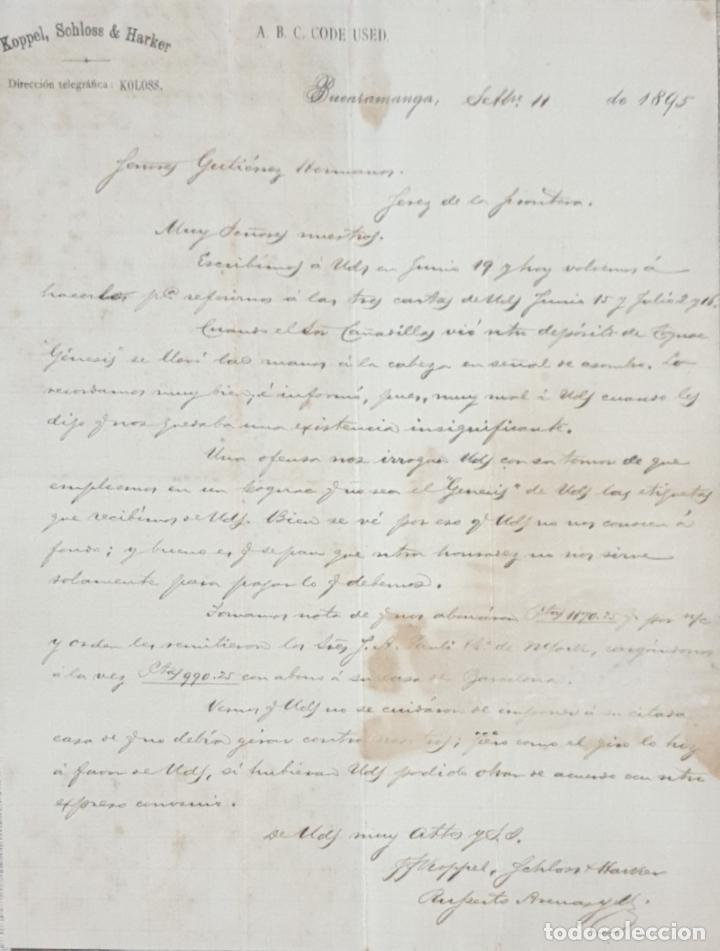 Koppel, Schloss & Harker
A. B. C. CODE USED.
Dirección telegráfica: KOLOSS.
Bucaramanga, Setbre 11 de 1895
Señores Gutiérrez Hermanos.
Jerez de la Frontera.
Muy Señores nuestros.
Escribimos á Uds en Junio 19 y hoy volvemos á
hacerlo pa referirnos á las tres cartas de Uds Junio 15 y Julio 2 y 16.
Cuando el Sor Cañadillas vió ntro depósito de Cognac
"Génesis" se llevó las manos á la cabeza en señal de asombro. Lo
recordamos muy bien, é informó, pues, muy mal á Uds cuando les
dijo q nos quedaba una existencia insignificante.
Una ofensa nos irrogan Uds con su temor de que
empleemos en un Cognac q no sea el "Genesis" de Uds las etiquetas
que recibimos de Uds. Bien se vé por eso q Uds no nos conocen á
fondo; y bueno es q sepan que ntra honradez no nos sirve
solamente para pagar lo q debemos.
Tomamos nota de q nos abonáron Ptas 1170.25 q por n/c
y orden les remitieron los Sres J. A. de N York, cargándonos
á la vez Ptas 990.25 con abono á su casa de Barcelona.
Vemos q Uds no se cuidáron de imponer á su citada
casa de q no debía girar contra nosotros; pero como el giro lo hizo
á favor de Uds, si hubieran Uds podido obrar de acuerdo con ntro
expreso convenio.
De Uds muy attos y S.S.
Koppel, Schloss & Harker
Ruperto Arenas
todocoleccion